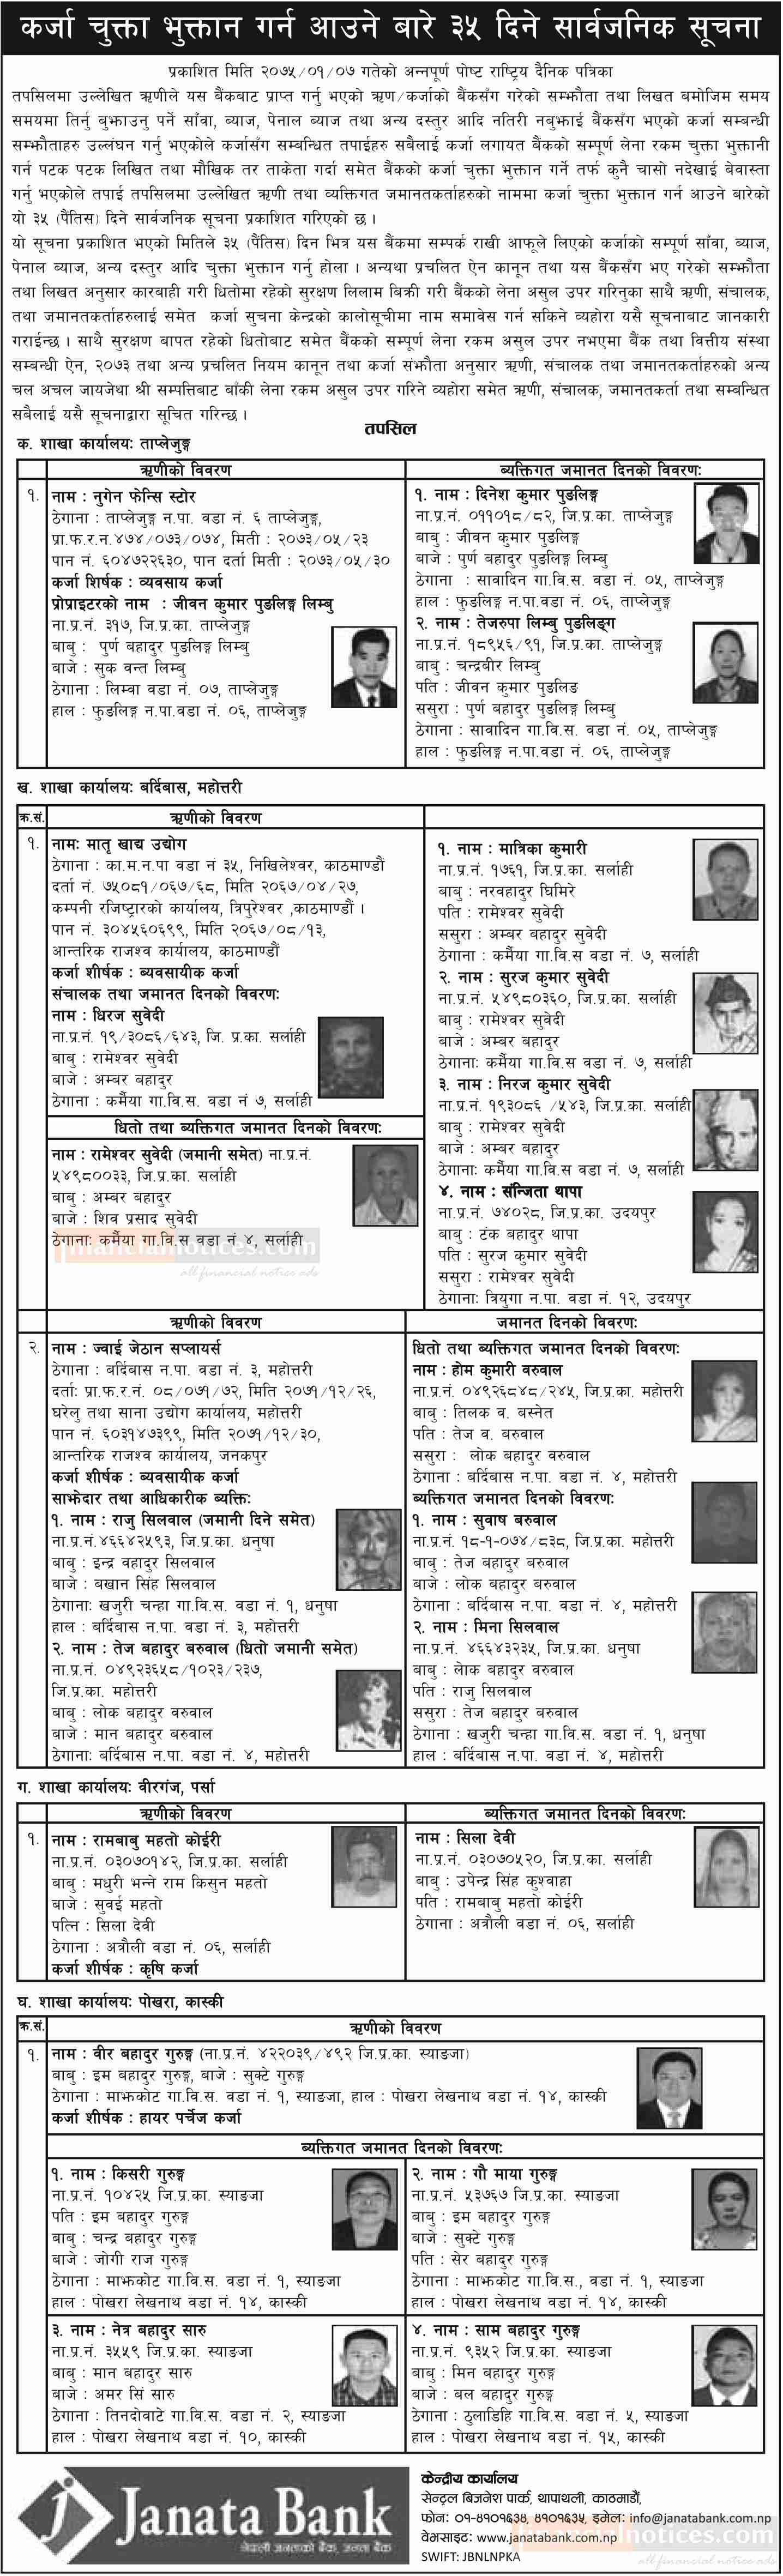 कर्जा चुक्ता भुक्तान गर्न आउने बारे ३५ दिने सार्वजनिक सूचना
प्रकाशित मिति २०७५/०१/०७ गतेको अन्नपूर्ण पोष्ट राष्ट्रिय दैनिक पत्रिका
तपसिलमा उल्लेखित ऋणीले यस बैंकबाट प्राप्त गर्नु भएको ऋण/कर्जाको बैंकसँग गरेको सम्झौता तथा लिखत बमोजिम समय
समयमा तिर्नु बुझाउनु पर्ने साँवा, ब्याज, पेनाल ब्याज तथा अन्य दस्तुर आदि नतिरी नबुझाई बैंकसँग भएको कर्जा सम्बन्धी
सम्झौताहरु उल्लंघन गर्नु भएकोले कर्जासँग सम्बन्धित तपाईहरु सबैलाई कर्जा लगायत बैंकको सम्पूर्ण लेना रकम चुक्ता भुक्तानी
गर्न पटक पटक लिखित तथा मौखिक तर ताकेता गर्दा समेत बैंकको कर्जा चुक्ता भुक्तान गर्ने तर्फ कुनै चासो नदेखाई बेवास्ता
गर्नु भएकोले तपाई तपसिलमा उल्लेखित ऋणी तथा व्यक्तिगत जमानतकर्ताहरुको नाममा कर्जा चुक्ता भुक्तान गर्न आउने बारेको
यो ३५ (पैंतिस) दिने सार्वजनिक सूचना प्रकाशित गरिएको छ ।
यो सूचना प्रकाशित भएको मितिले ३५ (पैंतिस) दिन भित्र यस बैंकमा सम्पर्क राखी आफूले लिएको कर्जाको सम्पूर्ण साँवा, ब्याज,
पेनाल ब्याज, अन्य दस्तुर आदि चुक्ता भुक्तान गर्नु होला । अन्यथा प्रचलित ऐन कानून तथा यस बैंकसँग भए गरेको सम्झौता
तथा लिखत अनुसार कारबाही गरी धितोमा रहेको सुरक्षण लिलाम बिक्री गरी बैंकको लेना असुल उपर गरिनुका साथै ऋणी, संचालक,
तथा जमानतकर्ताहरुलाई समेत कर्जा सुचना केन्द्रको कालोसूचीमा नाम समावेस गर्न सकिने व्यहोरा यसै सूचनाबाट जानकारी
गराईन्छ । साथै सुरक्षण बापत रहेको धितोबाट समेत बैंकको सम्पूर्ण लेना रकम असुल उपर नभएमा बैंक तथा वित्तीय संस्था
सम्बन्धी ऐन, २०७३ तथा अन्य प्रचलित नियम कानून तथा कर्जा संझौता अनुसार ऋणी, संचालक तथा जमानतकर्ताहरुको अन्य
चल अचल जायजेथा श्री सम्पत्तिबाट बाँकी लेना रकम असुल उपर गरिने व्यहोरा समेत ऋणी, संचालक, जमानतकर्ता तथा सम्बन्धित
सबैलाई यसै सूचनाद्वारा सूचित गरिन्छ ।
तपसिल
क. शाखा कार्यालयः ताप्लेजुङ्ग
ऋणीको विवरण
१. नाम : नुगेन फेन्सि स्टोर
ठेगाना : ताप्लेजुङ्ग न.पा. वडा नं. ६ ताप्लेजुङ्ग,
प्रा.फ.र.न.४७४/०७३/०७४, मिती : २०७३/०५/२३
पान नं. ६०४७२२६३०, पान दर्ता मिती : २०७३/०५/३०
कर्जा शिर्षक : व्यवसाय कर्जा
प्रोप्राइटरको नाम : जीवन कुमार पुङलिङ्ग लिम्बु
ना.प्र.नं. ३१७, जि.प्र.का. ताप्लेजुङ्ग
बाबु : पुर्ण बहादुर पुङलिङ्ग लिम्बु
बाजे : सुक वन्त लिम्बु
ठेगाना : लिम्बा वडा नं. ०७, ताप्लेजुङ्ग
हाल : फुङलिङ्ग न.पा.वडा नं. ०६, ताप्लेजुङ्ग
ब्यक्तिगत जमानत दिनको विवरणः
१. नाम : दिनेश कुमार पुङलिङ्ग
ना.प्र.नं. ०११०१८/८२, जि.प्र.का. ताप्लेजुङ्ग
बाबु : जीवन कुमार पुङलिङ्ग
बाजे : पुर्ण बहादुर पुङलिङ्ग लिम्बु
ठेगाना : सावादिन गा.वि.स. वडा नं. ०५, ताप्लेजुङ्ग
हाल : फुङलिङ्ग न.पा.वडा नं. ०६, ताप्लेजुङ्ग
२. नाम : तेजरुपा लिम्बु पुङलिङ्ग
ना.प्र.नं. १८९५६/९१, जि.प्र.का. ताप्लेजुङ्ग
बाबु : चन्द्रबीर लिम्बु
पति : जीवन कुमार पुङलिङ
ससुरा : पुर्ण बहादुर पुङलिङ्ग लिम्बु
ठेगाना : सावादिन गा.वि.स. वडा नं. ०५, ताप्लेजुङ्ग
हाल : फुङलिङ्ग न.पा.वडा नं. ०६, ताप्लेजुङ्ग
ख. शाखा कार्यालयः बर्दिबास, महोत्तरी
क्र.सं. ऋणीको विवरण
१. नामः मातृ खाद्य उद्योग
ठेगाना : का.म.न.पा वडा नं ३५, निखिलेश्वर, काठमाण्डौं
दर्ता नं. ७५०८१/०६७/६८, मिति २०६७/०४/२७,
कम्पनी रजिष्ट्रारको कार्यालय, त्रिपुरेश्वर ,काठमाण्डौं ।
पान नं. ३०४५६०६९९, मिति २०६७/०८/१३,
आन्तरिक राजश्व कार्यालय, काठमाण्डौं
कर्जा शीर्षक : ब्यवसायीक कर्जा
संचालक तथा जमानत दिनको विवरणः
नाम : धिरज सुवेदी
ना.प्र.नं. १९/३०८६/६४३, जि. प्र.का. सर्लाही
बाबु : रामेश्वर सुवेदी
बाजे : अम्बर बहादुर
ठेगाना : कर्मैया गा.वि.स. वडा नं ७, सर्लाही
धितो तथा ब्यक्तिगत जमानत दिनको विवरणः
नाम : रामेश्वर सुवेदी (जमानी समेत) ना.प्र.नं.
५४९८००३३, जि.प्र.का. सर्लाही
बाबु : अम्बर बहादुर
बाजे : शिव प्रसाद सुवेदी
ठेगानाः कर्मैया गा.वि.स वडा नं. ४, सर्लाही
financialnotices.com
all financial notice ads
१. नाम : मात्रिका कुमारी
ना.प्र.नं. १७६१, जि.प्र.का. सर्लाही
बाबु : नरवहादुर घिमिरे
पति : रामेश्वर सुवेदी
ससुरा : अम्बर बहादुर सुवेदी
ठेगाना : कर्मैया गा.वि.स वडा नं. ७, सर्लाही
२. नाम : सुरज कुमार सुवेदी
ना.प्र.नं. ५४९८०३६०, जि.प्र.का. सर्लाही
बाबु : रामेश्वर सुवेदी
बाजे : अम्बर बहादुर
ठेगानाः कर्मैया गा.वि.स वडा नं. ७, सर्लाही
३. नाम : निरज कुमार सुवेदी
ना.प्र.नं. १९३०८६ /५४३, जि.प्र.का. सर्लाही
बाबु : रामेश्वर सुवेदी
बाजे : अम्बर बहादुर
ठेगानाः कर्मैया गा.वि.स वडा नं. ७, सर्लाही
४. नाम : संन्जिता थापा
ना.प्र.नं. ७४०२८, जि.प्र.का. उदयपुर
बाबु : टंक बहादुर थापा
पति : सुरज कुमार सुवेदी
ससुरा : रामेश्वर सुवेदी
ठेगानाः त्रियुगा न.पा. वडा नं. १२, उदयपुर
ऋणीको विवरण
२. नाम : ज्वाई जेठान सप्लायर्स
ठेगाना : बर्दिबास न.पा. वडा नं. ३, महोत्तरी
दर्ताः प्रा.फ.र.नं. ०८/०७१/७२, मिति २०७१/१२/२६,
घरेलु तथा साना उद्योग कार्यालय, महोत्तरी
पान नं. ६०३१४७३९९, मिति २०७१/१२/३०,
आन्तरिक राजश्व कार्यालय, जनकपुर
कर्जा शीर्षक : ब्यवसायीक कर्जा
साझेदार तथा आधिकारीक ब्यक्तिः
१. नाम : राजु सिलवाल (जमानी दिने समेत)
ना.प्र.नं.४६६४२५९३, जि.प्र.का. धनुषा
बाबु : इन्द्र वहादुर सिलवाल
बाजे : बखान सिंह सिलवाल
ठेगानाः खजुरी चन्हा गा.वि.स. वडा नं. १, धनुषा
हाल : बर्दिबास न.पा. वडा नं. ३, महोत्तरी
२. नाम : तेज बहादुर बरुवाल (धितो जमानी समेत)
ना.प्र.नं. ०४९२३६५८/१०२३/२३७,
जि.प्र.का. महोत्तरी
बाबु : लोक बहादुर वरुवाल
बाजे : मान बहादुर बरुवाल
ठेगानाः बर्दिबास न.पा. वडा नं. ४, महोत्तरी
जमानत दिनको विवरणः
धितो तथा ब्यक्तिगत जमानत दिनको विवरणः
नाम : होम कुमारी वरुवाल
ना.प्र.नं. ०४९२६८४८/२४५, जि.प्र.का. महोत्तरी
बाबु : तिलक व. बस्नेत
पति : तेज व. बरुवाल
ससुरा : लोक बहादुर वरुवाल
ठेगाना : बर्दिबास न.पा. वडा नं. ४, महोत्तरी
ब्यक्तिगत जमानत दिनको विवरणः
१. नाम : सुवाष बरुवाल
ना.प्र.नं. १८-१-०७४/८३८, जि.प्र.का. महोत्तरी
बाबु : तेज बहादुर बरुवाल
बाजे : लोक बहादुर बरुवाल
ठेगाना : बर्दिबास न.पा. वडा नं. ४, महोत्तरी
२. नाम : मिना सिलवाल
ना.प्र.नं. ४६६४३२३५, जि.प्र.का. धनुषा
बाबु : लोक बहादुर वरुवाल
पति : राजु सिलवाल
ससुरा : तेज बहादुर बरुवाल
ठेगाना : खजुरी चन्हा गा.वि.स. वडा नं. १, धनुषा
हाल : बर्दिबास न.पा. वडा नं. ४, महोत्तरी
ग. शाखा कार्यालयः वीरगंज, पर्सा
ऋणीको विवरण
१. नाम : रामबाबु महतो कोईरी
ना.प्र.नं. ०३०७०१४२, जि.प्र.का. सर्लाही
बाबु : मधुरी भन्ने राम किसुन महतो
बाजे : सुवई महतो
पत्नि : सिला देवी
ठेगाना : अत्रौली वडा नं. ०६, सर्लाही
कर्जा शीर्षक : कृषि कर्जा
ब्यक्तिगत जमानत दिनको विवरणः
नाम : सिला देवी
ना.प्र.नं. ०३०७०५२०, जि.प्र.का. सर्लाही
बाबु : उपेन्द्र सिंह कुश्वाहा
पति : रामबाबु महतो कोईरी
ठेगाना : अत्रौली वडा नं. ०६, सर्लाही
घ. शाखा कार्यालयः पोखरा, कास्की
क्र.सं. ऋणीको विवरण
१. नाम : वीर बहादुर गुरुङ्ग (ना.प्र.नं. ४२२०३९/४९२ जि.प्र.का. स्याङजा)
बाबु : इम बहादुर गुरुङ्ग, बाजे : सुक्टे गुरुङ्ग
ठेगाना : माझकोट गा.वि.स. वडा नं. १, स्याङजा, हाल : पोखरा लेखनाथ वडा नं. १४, कास्की
कर्जा शीर्षक : हायर पर्चेज कर्जा
ब्यक्तिगत जमानत दिनको विवरणः
१. नाम : किसरी गुरुङ्ग
ना.प्र.नं. १०४२५ जि.प्र.का. स्याङजा
पति : इम बहादुर गुरुङ्ग
बाबु : चन्द्र बहादुर गुरुङ्ग
बाजे : जोगी राज गुरुङ्ग
ठेगाना : माझकोट गा.वि.स. वडा नं. १, स्याङजा
हाल : पोखरा लेखनाथ वडा नं. १४, कास्की
२. नाम : गौ माया गुरुङ्ग
ना.प्र.नं. ५३७६७ जि.प्र.का. स्याङजा
बाबु : इम बहादुर गुरुङ्ग
बाजे : सुक्टे गुरुङ्ग
पति : सेर बहादुर गुरुङ्ग
ठेगाना : माझकोट गा.वि.स., वडा नं. १, स्याङजा
हाल : पोखरा लेखनाथ वडा नं. १४, कास्की
३. नाम : नेत्र बहादुर सारु
ना.प्र.नं. ३५५९ जि.प्र.का. स्याङजा
बाबु : मान बहादुर सारु
बाजे : अमर सिं सारु
ठेगाना : तिनदोवाटे गा.वि.स. वडा नं. २, स्याङजा
हाल : पोखरा लेखनाथ वडा नं. १०, कास्की
४. नाम : साम बहादुर गुरुङ्ग
ना.प्र.नं. ९३५२ जि.प्र.का. स्याङजा
बाबु : मिन बहादुर गुरुङ्ग
बाजे : बल बहादुर गुरुङ्ग
ठेगाना : ठुलाडिहि गा.वि.स. वडा नं. ५, स्याङजा
हाल : पोखरा लेखनाथ वडा नं. १५, कास्की
Janata Bank
नेपाली जनताको बैंक, जनता बैंक
केन्द्रीय कार्यालय
सेन्ट्रल बिजनेश पार्क, थापाथली, काठमाडौं,
फोनः ०१-४१०१६३४, ४१०१६३५, इमेलः info@janatabank.com.np
वेभसाइटः www.janatabank.com.np
SWIFT: JBNLNPKA
financialnotices.com
all financial notice ads